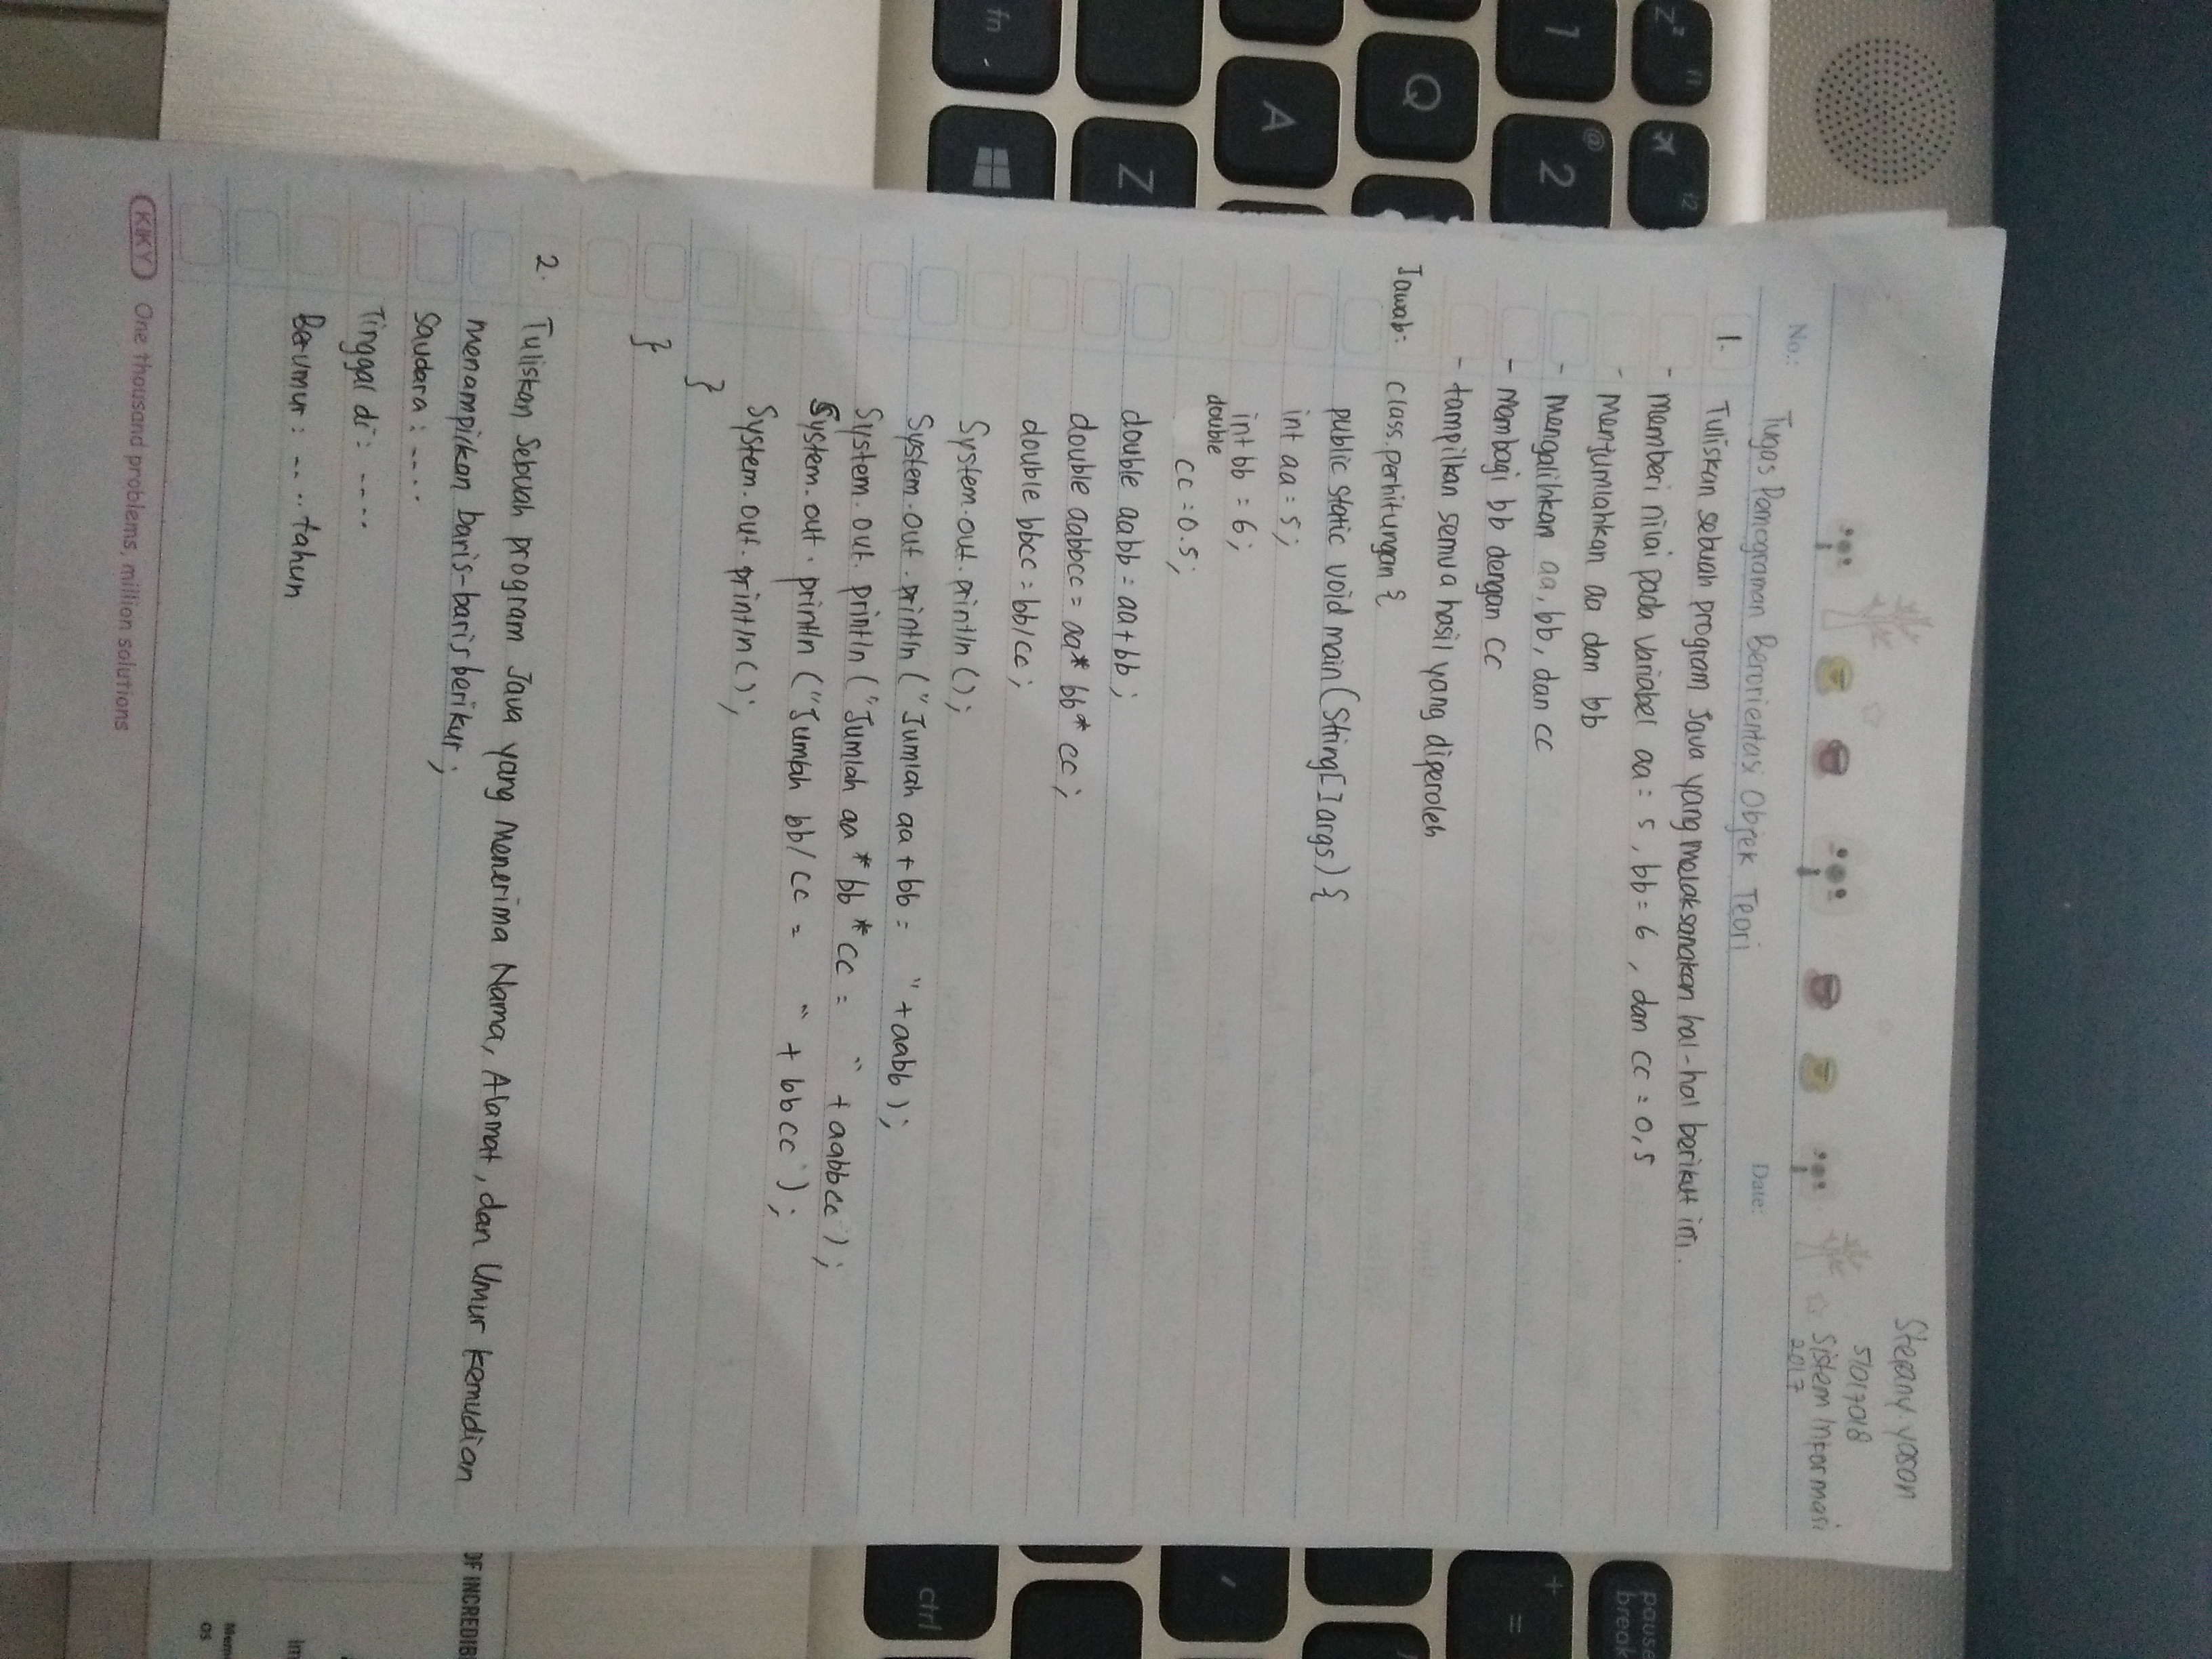 Stepany yason
51017018
Sistem Informasi
2017
No.:
Date:
Tugas Pemograman Berorientasi Objek Teori
1. Tuliskan sebuah program Java yang melaksanakan hal-hal berikut ini.
- memberi nilai pada variabel aa = 5, bb = 6, dan cc = 0,5
- menjumlahkan aa dan bb
- mengalihkan aa, bb, dan cc
- membagi bb dengan cc
- tampilkan semua hasil yang diperoleh
Jawab: class perhitungan {
public static void main (String[] args) {
int aa = 5;
int bb = 6;
double
cc = 0.5;
double aabb = aa + bb;
double aabbcc = aa * bb * cc;
double bbcc = bb/cc;
System.out.println ();
System.out.println ("Jumlah aa + bb = " + aabb);
System.out.println ("Jumlah aa * bb * cc = " + aabbcc);
System.out.println ("Jumlah bb/ cc = " + bbcc);
System.out.println ();
}
}
2. Tuliskan Sebuah program Java yang Menerima Nama, Alamat, dan Umur kemudian
menampilkan baris-baris berikut;
Saudara : ----
Tinggal di : ----
Berumur : ---- tahun
KIKY One thousand problems, million solutions
z² f1
f2
1
@ 2
Q
A
Z
fn
pause
break
+
=
ctrl
OF INCREDIB